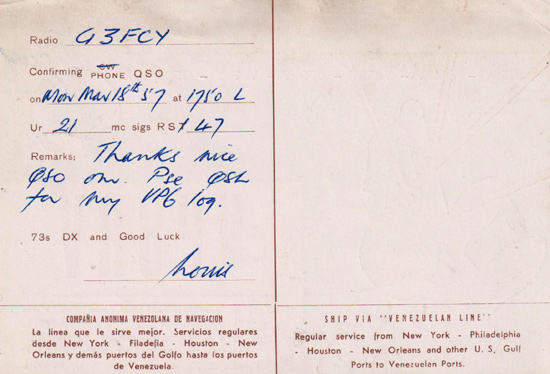 Radio G3FCY
Confirming CW
PHONE QSO
on Mon Mar 18th 57 at 1750 L
Ur 21 mc sigs RST 47
Remarks: Thanks nice
QSO om. Pse QSL
for my VP6 log.
73s DX and Good Luck
Louis
COMPAÑIA ANONIMA VENEZOLANA DE NAVEGACION
La linea que le sirve mejor. Servicios regulares
desde New York - Filadefia - Houston - New
Orleans y demás puertos del Golfo hasta los puertos
de Venezuela.
SHIP VIA "VENEZUELAN LINE"
Regular service from New York - Philadelphia
- Houston - New Orleans and other U. S, Gulf
Ports to Venezuelan Ports.